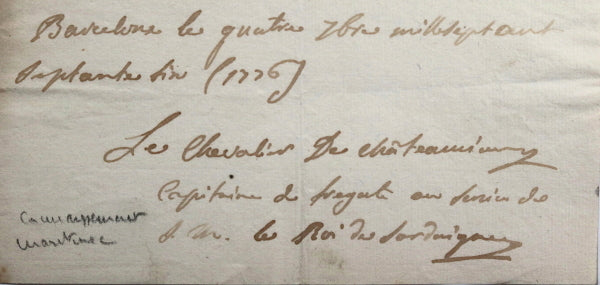 Barcelone le quatre 7bre mille sept cent
septante six (1776)
Le Chevalier De
Capitaine de fregate au service de
S. M. le Roi de Sardaigne
Connaissement
maritime